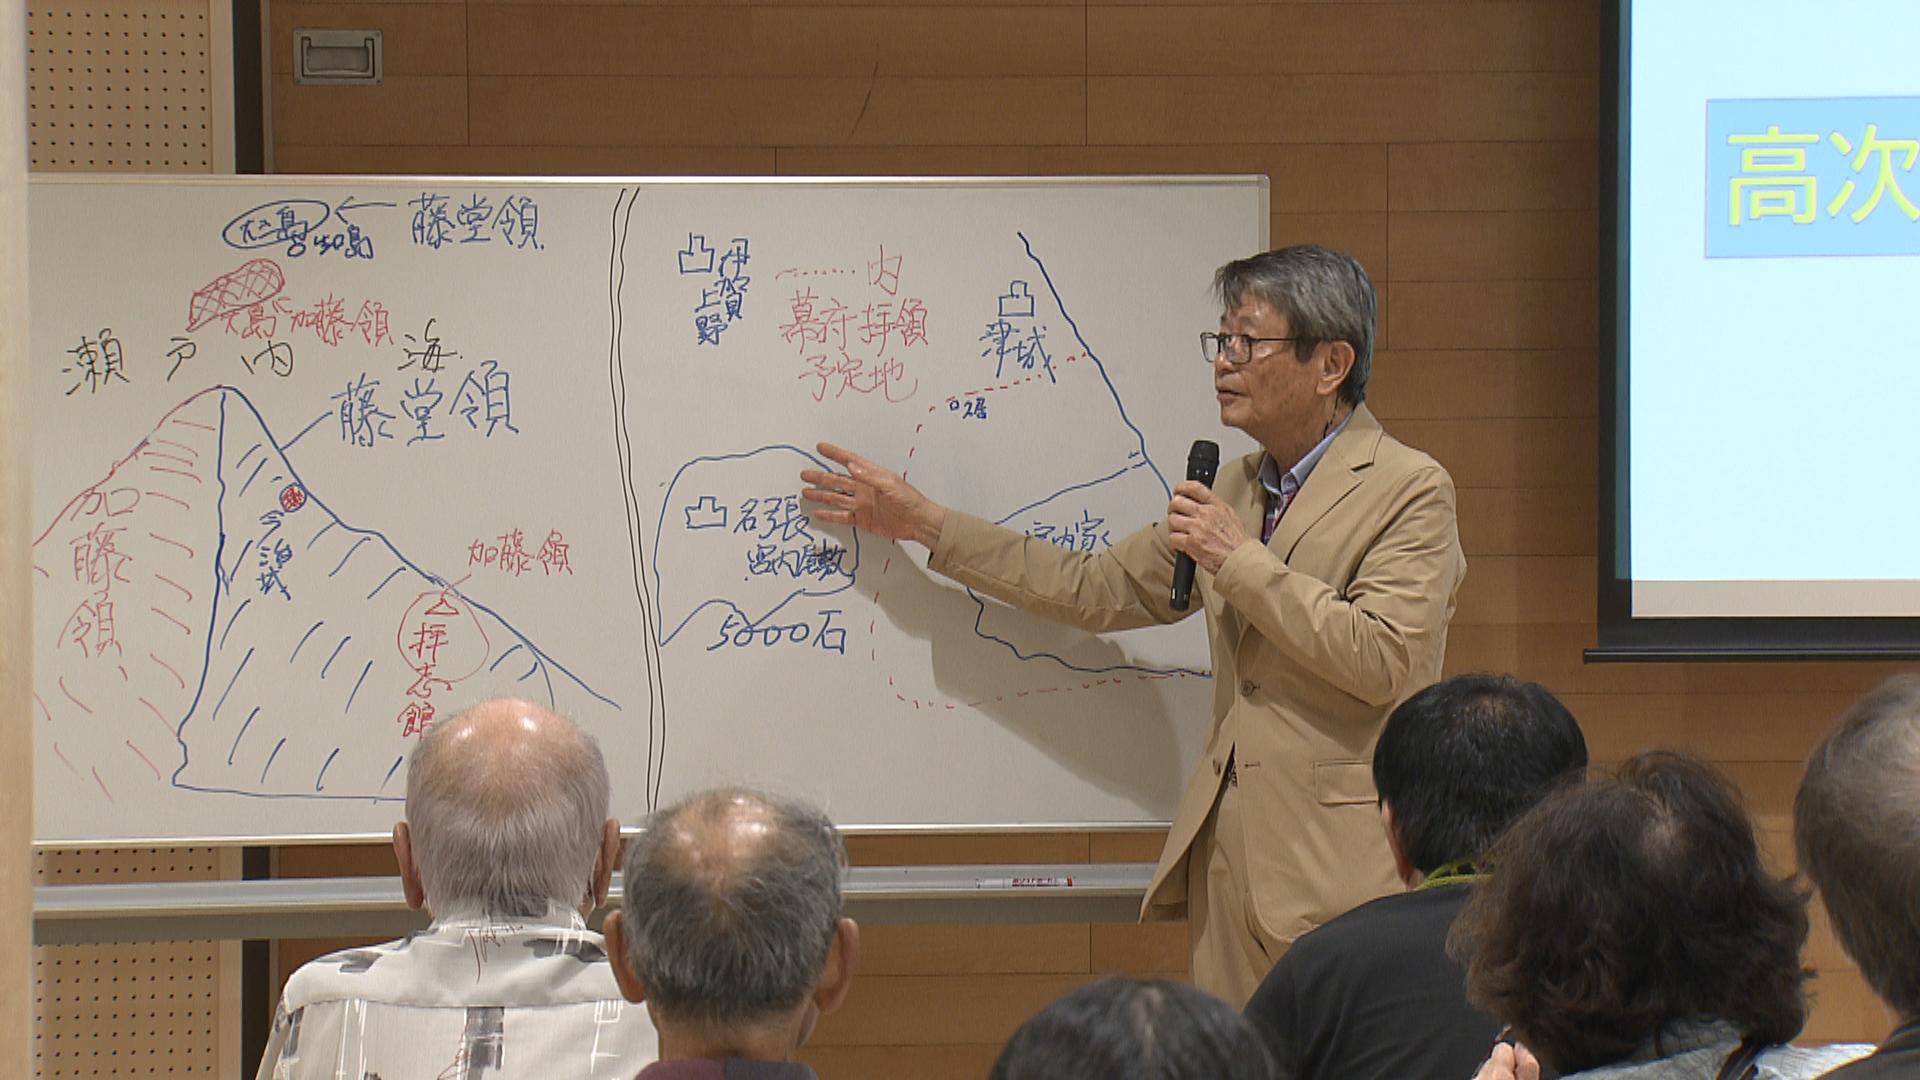 藤堂領
大島
加藤領
瀬戸内海
藤堂領
加藤領
今治城
加藤領
拝志館
伊賀上野
内
幕府拝領
予定地
津城
久居
名張
宮内屋敷
5000石
宮内家
高次